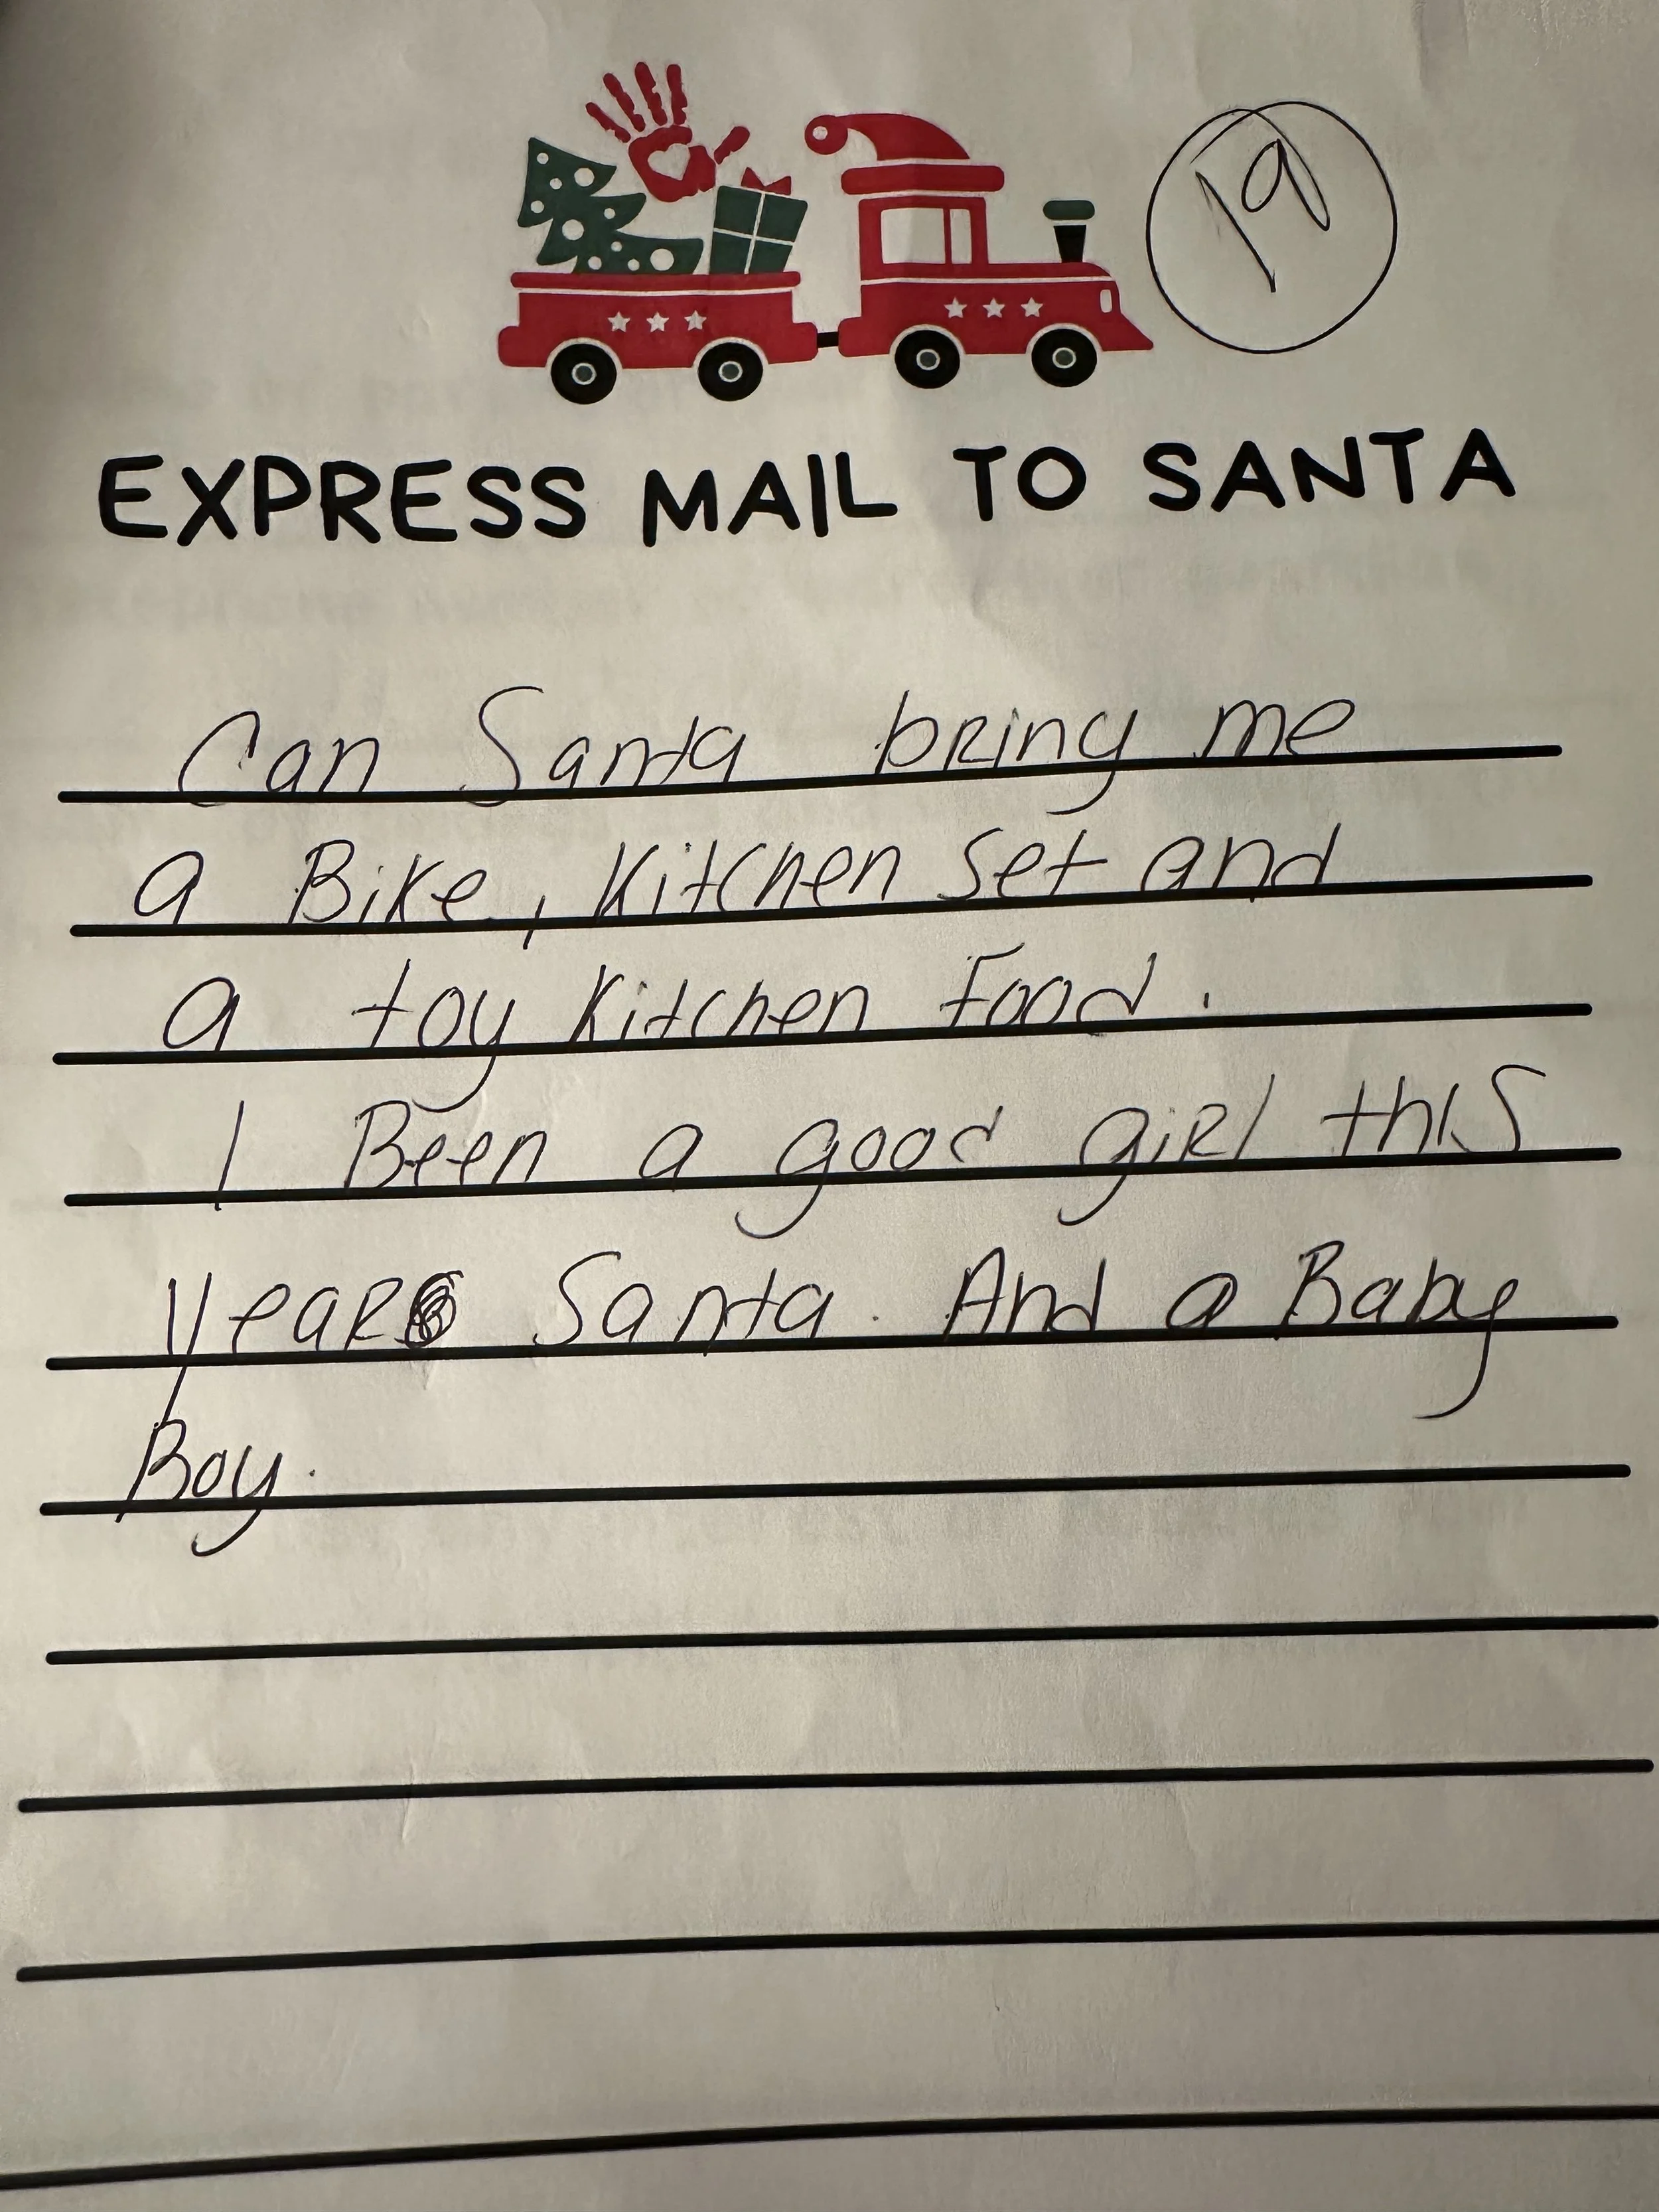 19
EXPRESS MAIL TO SANTA
Can Santa bring me
a Bike, Kitchen set and
a toy Kitchen Food.
I Been a good girl this
year Santa. And a Baby
Boy.